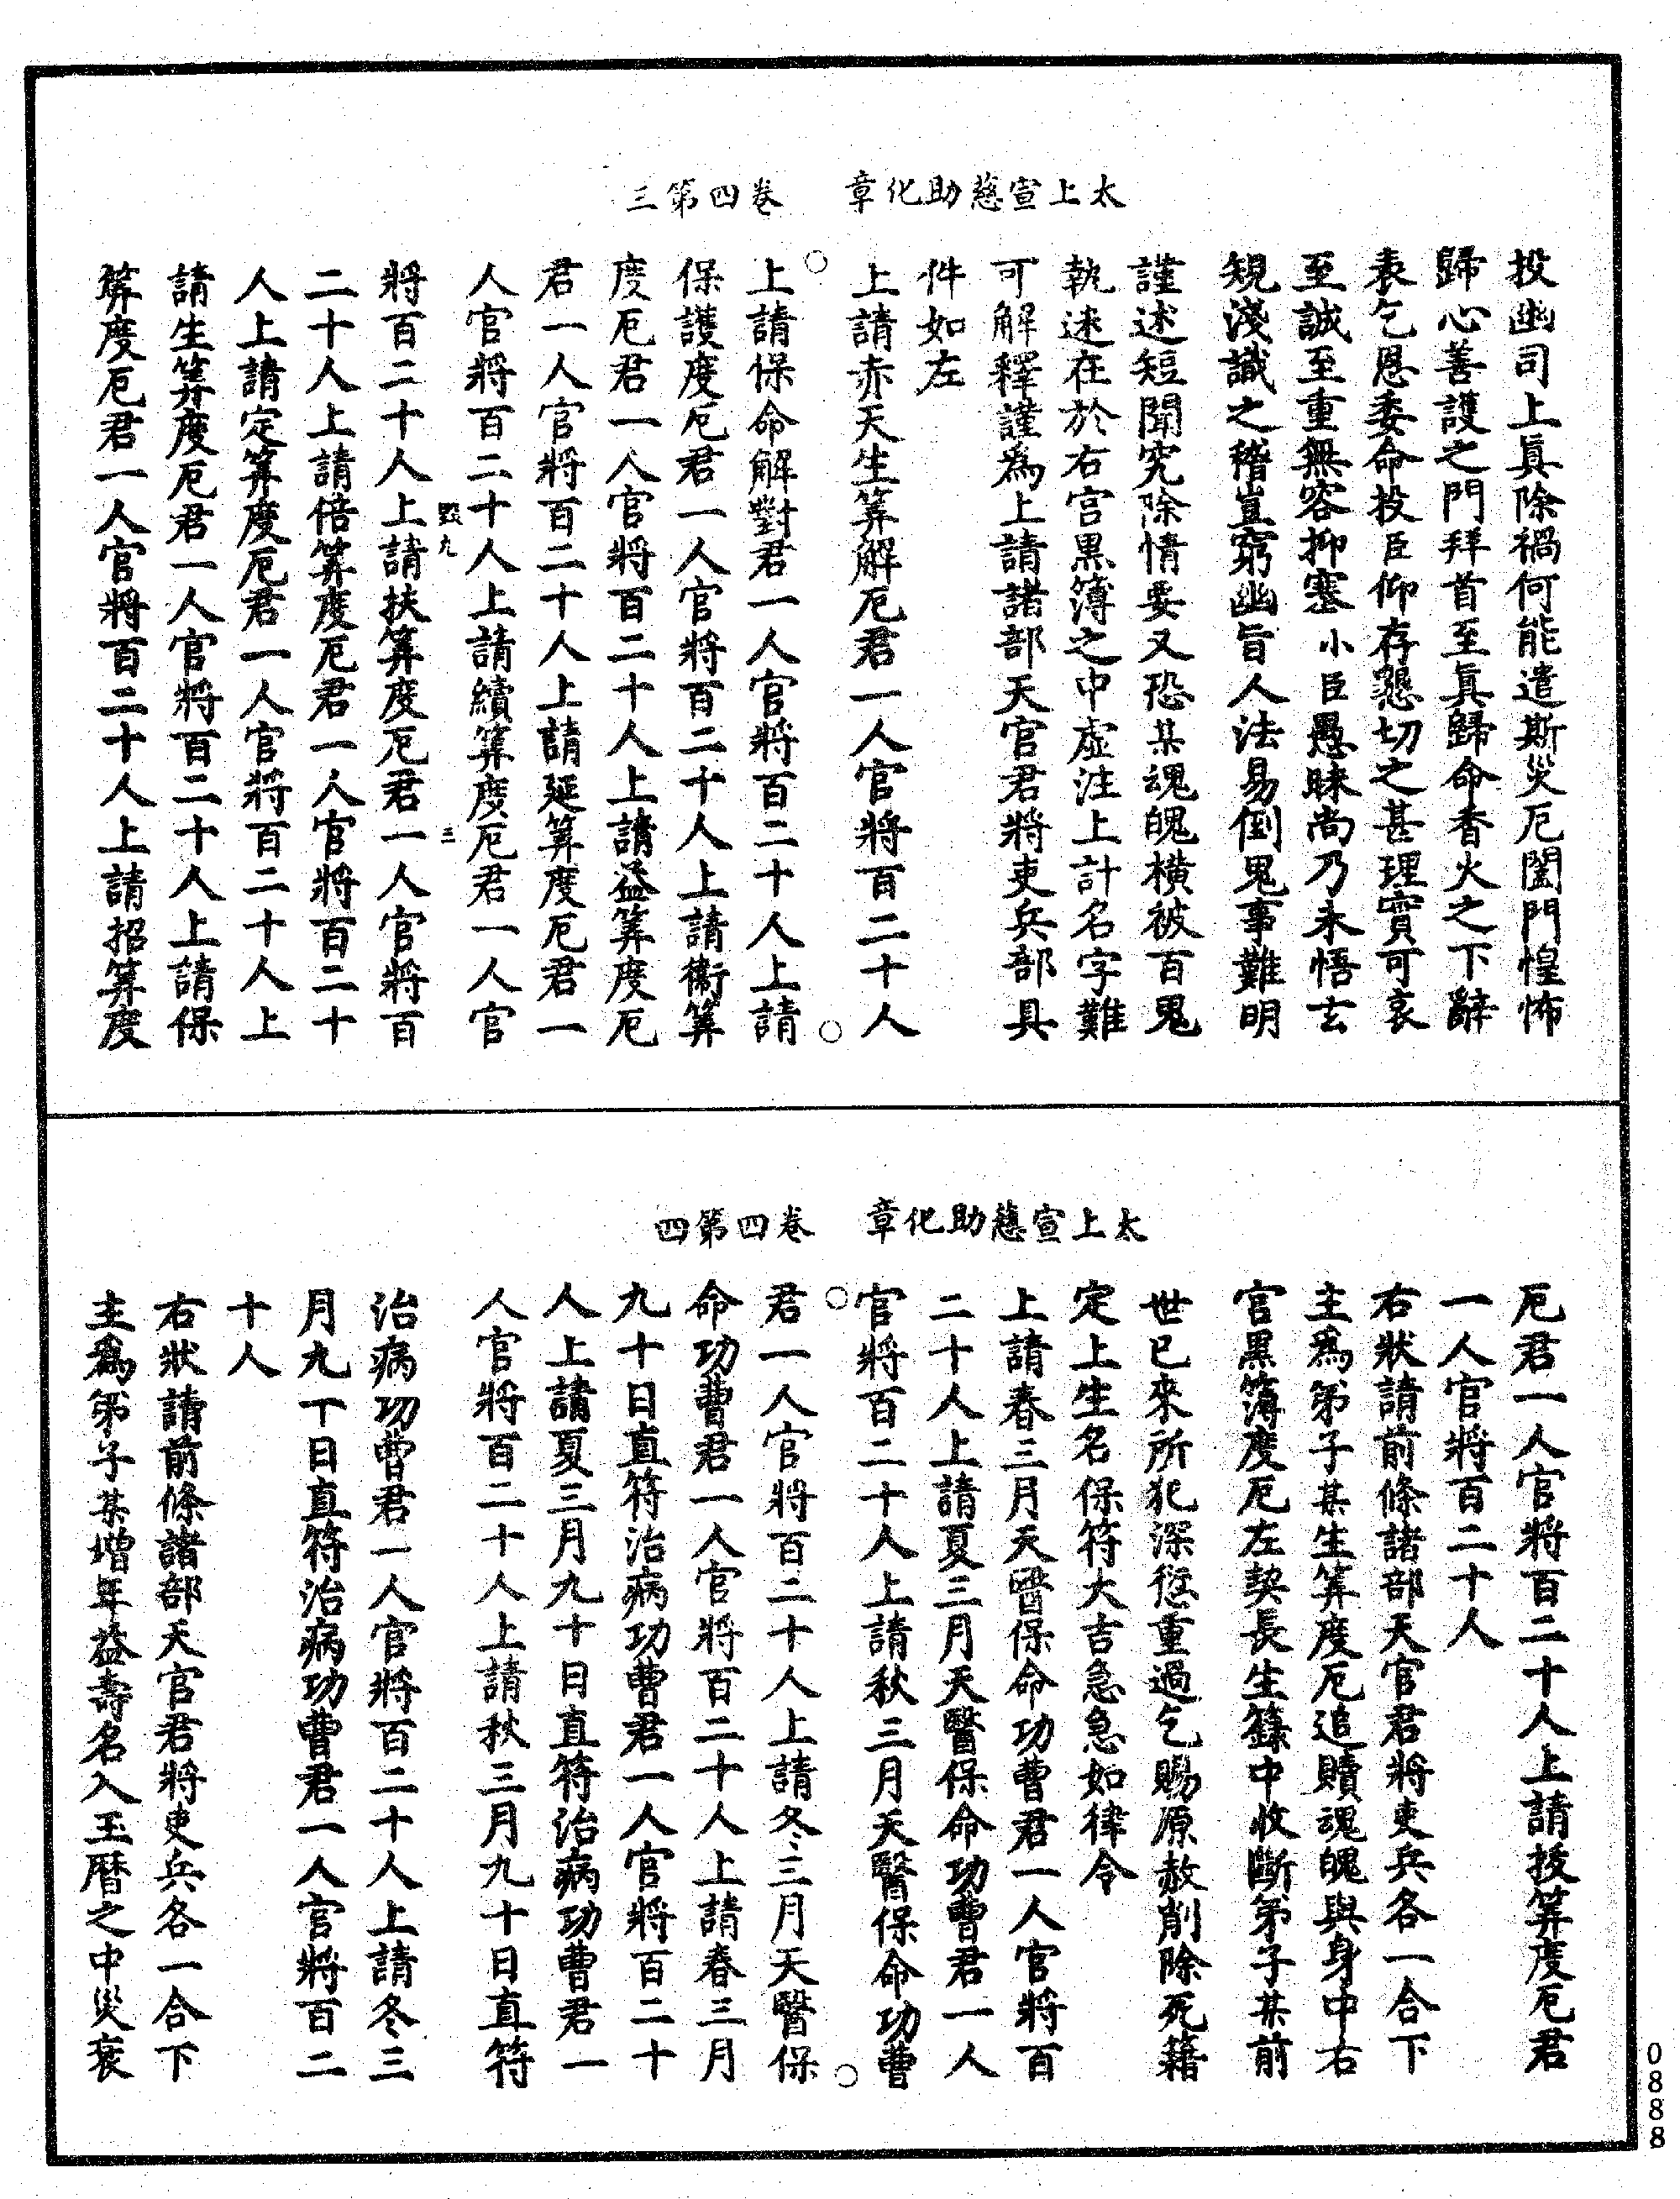 太上宣慈助化章　卷四第三
投幽司上真除禍何能遣斯災厄闔門惶怖
歸心善護之門拜首至真歸命香火之下辭
表乞恩委命投臣仰存懇切之甚理實可哀
至誠至重無容抑塞小臣愚昧尚乃未悟玄
規淺識之稽豈窮幽旨人法易倒鬼事難明
謹述短聞究除情要又恐某魂魄橫被百鬼
執逮在於右宫黑簿之中虛注上計名字難
可解釋謹為上請諸部天官君將吏兵部具
件如左
上請赤天生筭解厄君一人官將百二十人
上請保命解對君一人官將百二十人上請
保護度厄君一人官將百二十人上請衛筭
度厄君一人官將百二十人上請益筭度厄
君一人官將百二十人上請延筭度厄君一
人官將百二十人上請續筭度厄君一人官
將百二十人上請扶筭度厄君一人官將百
二十人上請倍筭度厄君一人官將百二十
人上請定筭度厄君一人官將百二十人上
請生筭度厄君一人官將百二十人上請保
筭度厄君一人官將百二十人上請招筭度
太上宣慈助化章　卷四第四
厄君一人官將百二十人上請投筭度厄君
一人官將百二十人
右狀請前條諸部天官君將吏兵各一合下
主為弟子某生筭度厄追贖魂魄與身中右
官黑簿度厄左契長生籙中收斷弟子某前
世已來所犯深愆重過乞賜原赦削除死籍
定上生名保符大吉急急如律令
上請春三月天醫保命功曹君一人官將百
二十人上請夏三月天醫保命功曹君一人
官將百二十人上請秋三月天醫保命功曹
君一人官將百二十人上請冬三月天醫保
命功曹君一人官將百二十人上請春三月
九十日直符治病功曹君一人官將百二十
人上請夏三月九十日直符治病功曹君一
人官將百二十人上請秋三月九十日直符
治病功曹君一人官將百二十人上請冬三
月九丁日直符治病功曹君一人官將百二
十人
右狀請前條諸部天官君將吏兵各一合下
主為弟子某增年益壽名入玉曆之中災衰
0888